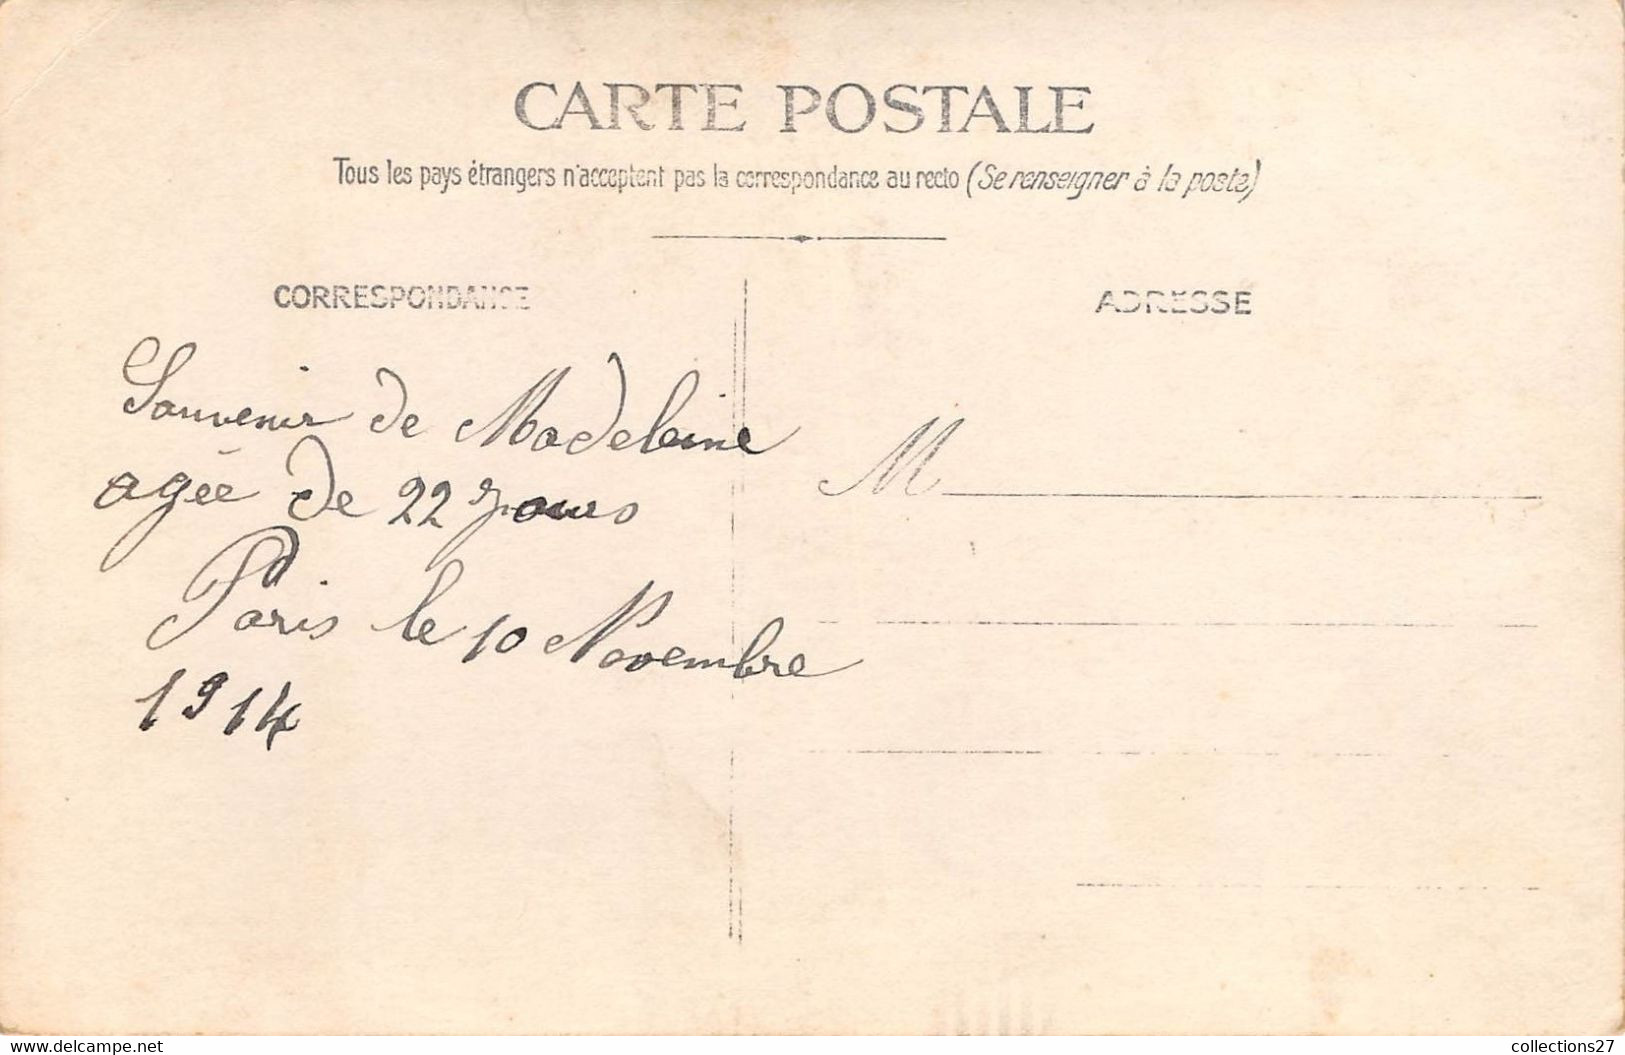 CARTE POSTALE
Tous les pays étrangers n'acceptent pas la correspondance au recto (Se renseigner à la poste)
CORRESPONDANCE
ADRESSE
Souvenir de Madeleine
agée de 22 jours
Paris le 10 Novembre
1914
M
www.delcampe.net
collections27